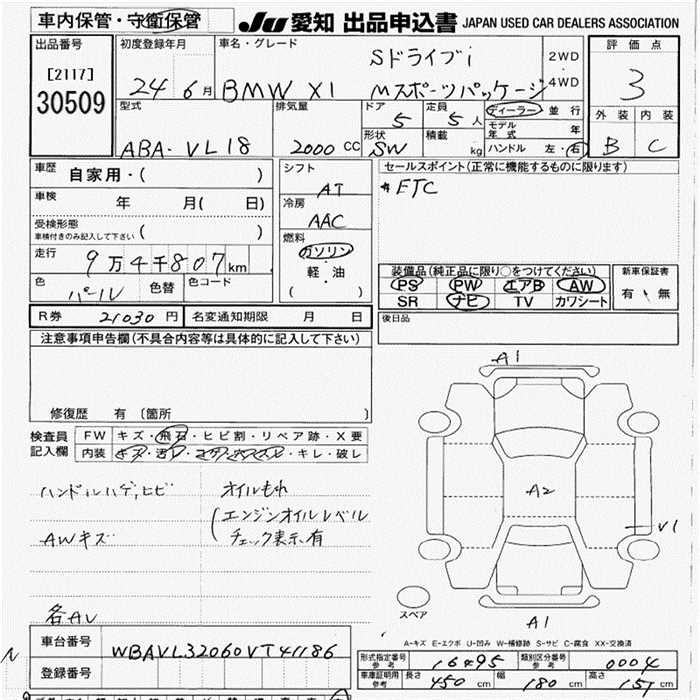 車内保管・守衛保管
JU 愛知 出品申込書 JAPAN USED CAR DEALERS ASSOCIATION
出品番号
[2117]
30509
初度登録年月
24 6月
車名・グレード
BMW X1
Sドライブi
Mスポーツパッケージ
2WD
・
4WD
評価点
3
外装 内装
B C
型式
ABA-VL18
排気量
2000 CC
ドア
5
定員
5人
形状
SW
積載
kg
ディーラー 並行
モデル年式 年
ハンドル 左・右
車歴
自家用・( )
車検
年 月( 日)
受検形態
車検付きのみ記入して下さい ( )
走行
9万4千807km
色
パール
色替
色コード
シフト
AT
冷房
AAC
燃料
ガソリン
・
軽・油
( )
セールスポイント(正常に機能するものに限ります)
ETC
装備品(純正品に限り○をつけてください)
PS PW エアB AW
SR ナビ TV カワシート
新車保証書
有・無
R券 21030円 名変通知期限 月 日
後日品
注意事項申告欄(不具合内容等は具体的に記入して下さい)
修復歴 有〔箇所 〕
検査員
記入欄
FW キズ・飛石・ヒビ割・リペア跡・X要
内装 キズ・汚レ・コゲ・穴・スレ・キレ・破レ
ハンドルハゲ,ヒビ
オイルもれ
(エンジンオイルレベル
チェック表示有
AWキズ
各AU
A1
A2
V1
A1
スペア
A-キズ E-エクボ U-凹み W-補修跡 S-サビ C-腐食 XX-交換済
車台番号 WBAVL32060VT41186
登録番号
型式指定番号 参考 16495
類別区分番号 参考 0004
車庫証明用 参考 長さ 450cm 幅 180cm 高さ 151cm